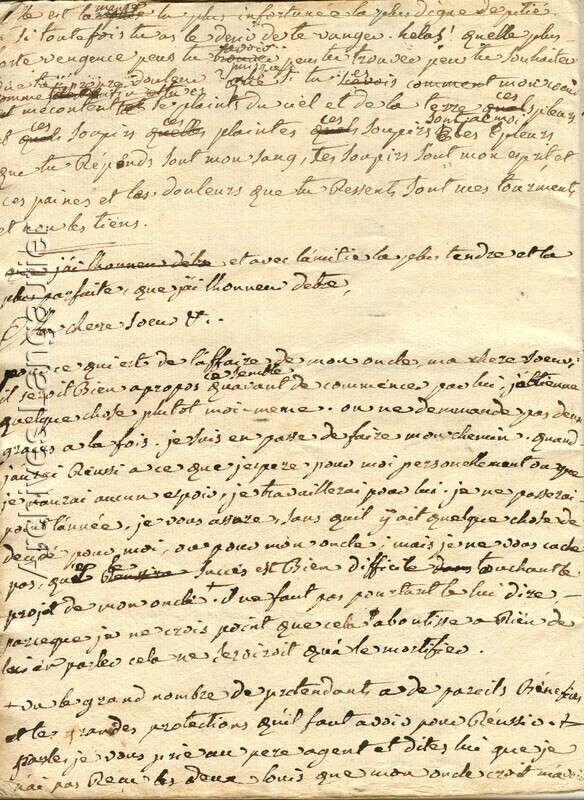 elle est la plus infortunée la plus digne de pitié
si toutefois tu as le desir de te vanger. helas! quelle plus
forte vengence peus tu trouver peus tu souhaiter
douleur si tu vois comment mon coeur
et mecontent se plaints du ciel et de la terre ces pleurs
et ces soupirs plaintes ces soupirs sont à moi, les pleurs
que tu Répends sont mon sang, tes soupirs sont mon esprit, et
ces paines et les douleurs que tu Ressent, sont mes tourments
et non les tiens.
j'ai l'honneur d'être et avec l'amitié la plus tendre et la
plus parfaite, que j'ai l'honneur d'etre,
Ma chere soeur &.
pour ce qui est de l'affaire de mon oncle, ma chere soeur,
il seroit Bien apropos ce semble qu'avant de commencer par lui, j'obtienne
quelque chose plutot moi-meme. on ne demmande pas deux
graces a la fois. je suis en passe de faire mon chemin. quand
j'aurai Réussi a ce que j'espere pour moi personellement ou que
je n'aurai aucun espoir, je travaillerai pour lui. je ne passerai
point l'année, je vous assure, sans qu'il y ait quelque chose de
decidé pour moi, ou pour mon oncle; mais je ne vous cache
pas, que le succès est Bien difficile touchant le
projet de mon oncle + il ne faut pas pourtant le lui dire
parceque je ne crois point que cela aboutisse a Rien de
lui en parler cela ne serviroit qu'à le mortifier.
+ vu le grand nombre de pretendants a de pareils Bénéfices
et les grandes protections qu'il faut avoir pour Réussir. +
parlez je vous prie au pere agent et dites lui que je
n'ai pas Reçu les deux louis que mon oncle croit m'avoir
Archives Lang Gautier